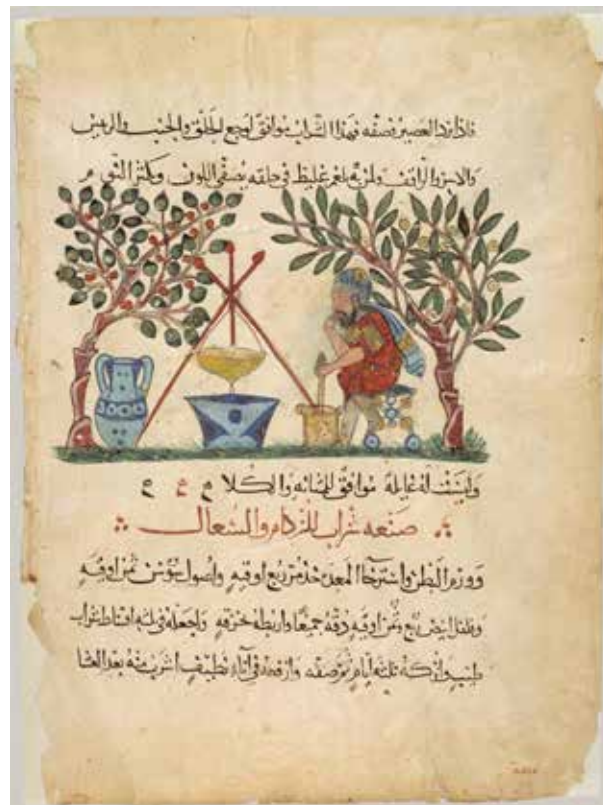 فاذا برد العصير فصفه فهذا الشراب يوافق لوجع الحلق والجنب والريس
والاسر ولمن به بلغم غليظ في حلقه يصفي اللون ويكثر النوم م
وليست له غايلة موافق للمثانه والكلا
صنعه شراب للزكام والسعال
وورم البطن واسترخا المعده خذ مر ربع اوقيه واصول سوسن ثمن اوقيه
وفلفل ابيض ربع وثمن اوقيه دقه جميعا واربطه في خرقه واجعله في ثلثه اقساط شراب
طيب واتركه ثلثه ايام ثم صفه وارفعه في اناء نظيف اشرب منه بعد العشا